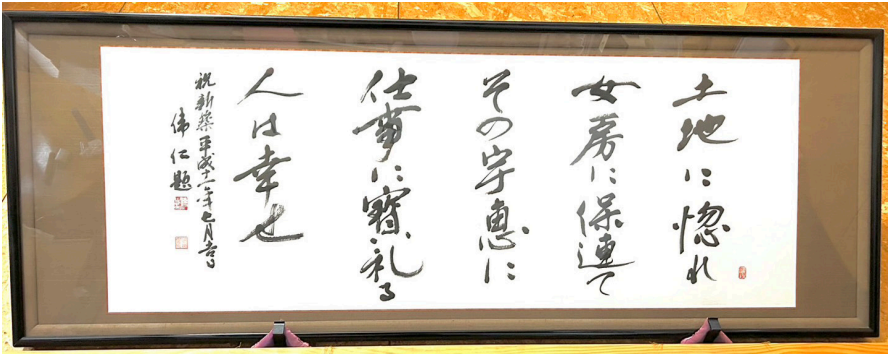 土地に惚れ
女房に保連て
その宇恵に
仕事に寶礼る
人は幸也
祝新築平成十一年七月吉日
偉仁題